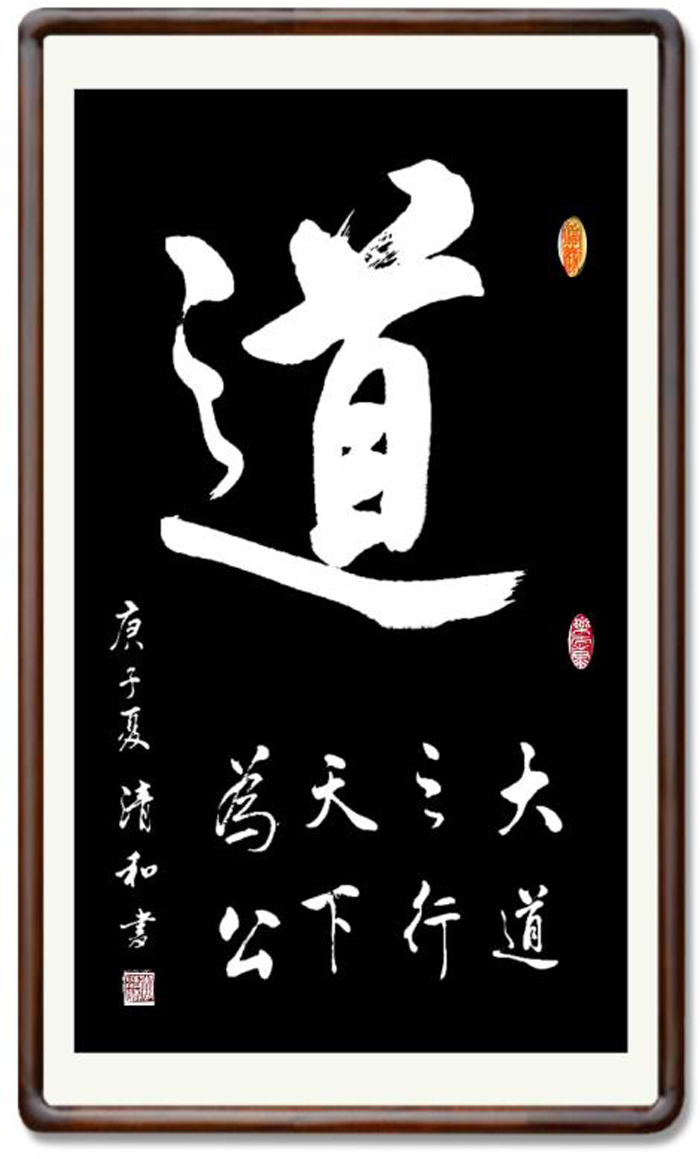 道
大道
之行
天下
為公
庚子夏清和書